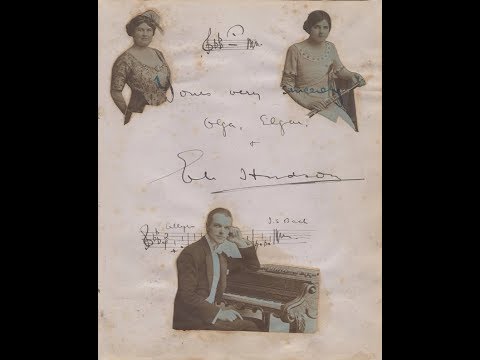 Yours very sincerely
Olga, Elgar.
+
Hudson
Allegro J.S. Bach